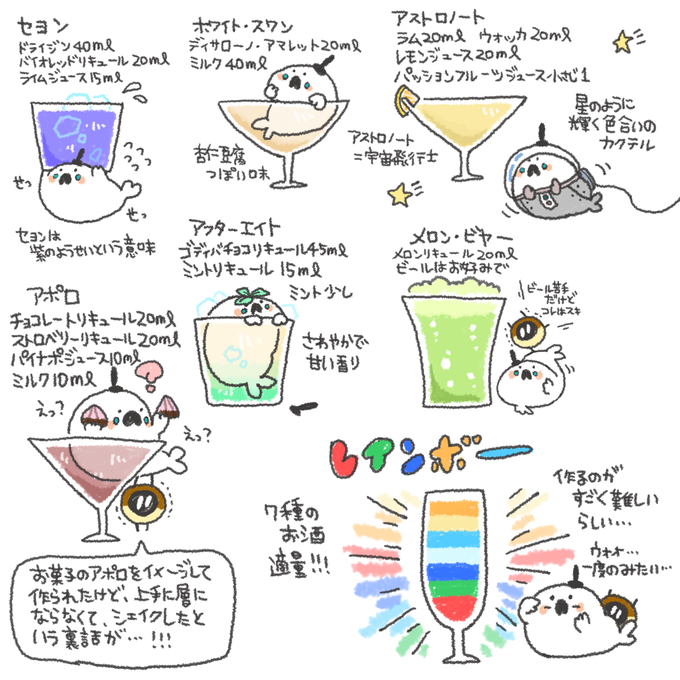 セヨン
ドライジン40ml
バイオレッドリキュール20ml
ライムジュース15ml
せっ
せっ
セヨンは
紫のようせいという意味
ホワイト・スワン
ディサローノ・アマレット20ml
ミルク40ml
杏仁豆腐
っぽい味
アストロノート
ラム20ml ウォッカ20ml
レモンジュース20ml
パッションフルーツジュース小さじ1
アストロノート
=宇宙飛行士
星のように
輝く色合いの
カクテル
アフターエイト
ゴディバチョコリキュール45ml
ミントリキュール 15ml
ミント少し
さわやかで
甘い香り
メロン・ビヤー
メロンリキュール20ml
ビールはお好みで
ビール苦手
だけど
コレはスキ
アポロ
チョコレートリキュール20ml
ストロベリーリキュール20ml
パイナポジュース10ml
ミルク10ml
えっ?
えっ?
お菓子のアポロをイメージして
作られたけど、上手に層に
ならなくて、シェイクしたと
いう裏話が…!!!
レインボー
7種の
お酒
適量!!!
作るのが
すごく難しい
らしい…
ウォォ…
一度のみたい…